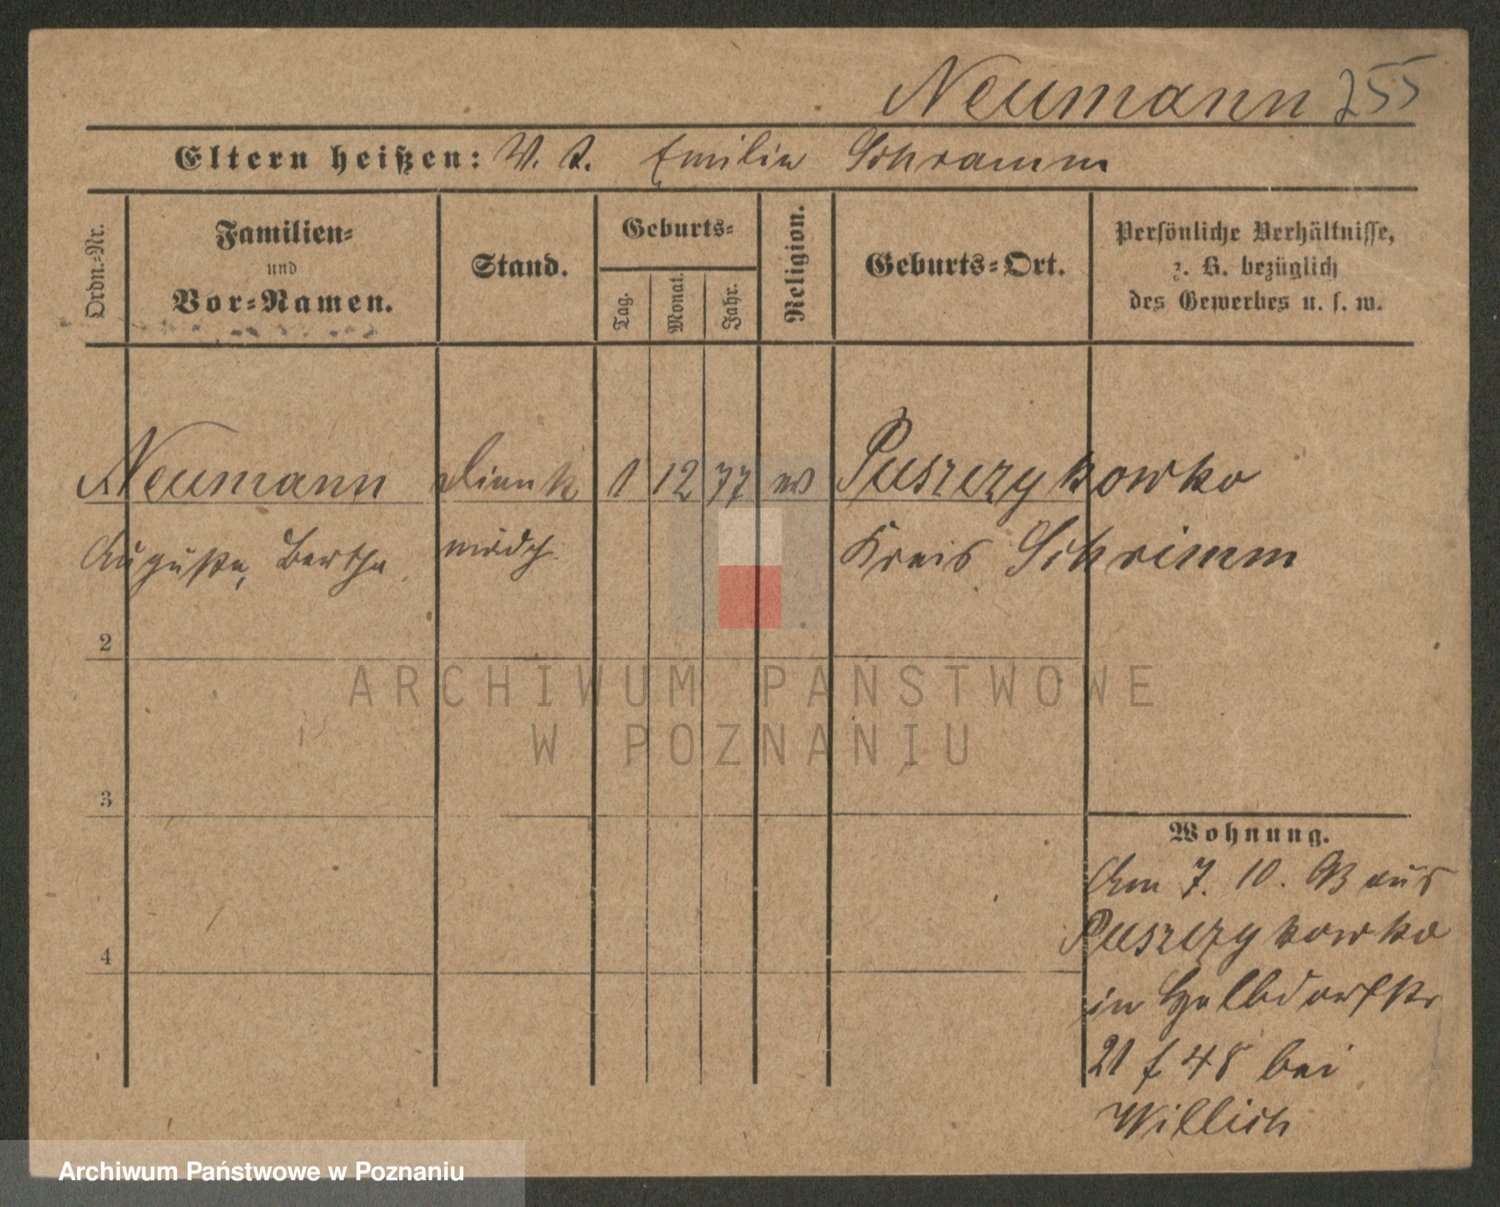 Neumann 255
Eltern heißen: V. t. Emilie Schramm
Ordn.-Nr.
Familien-
und
Vor-Namen.
Stand.
Geburts-
Tag.
Monat.
Jahr.
Religion.
Geburts-Ort.
Persönliche Verhältnisse,
z. B. bezüglich
des Gewerbes u. s. w.
Neumann Dienst 1 12 77 ev Puszczykowko
Auguste, Bertha mädch. Kreis Schrimm
2
3
4
Wohnung.
Am 7. 10. 93 aus
Puszczykowko
in
21 f 48 bei
Willich
ARCHIWUM PAŃSTWOWE
W POZNANIU
Archiwum Państwowe w Poznaniu